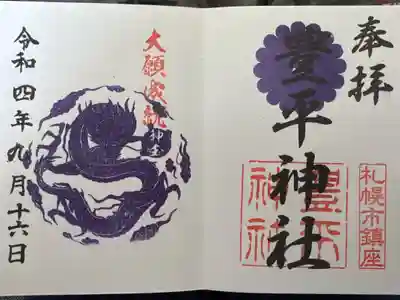 奉拝
豊平神社
豊平
神社
札幌市鎮座
大願成就
令和四年九月十六日